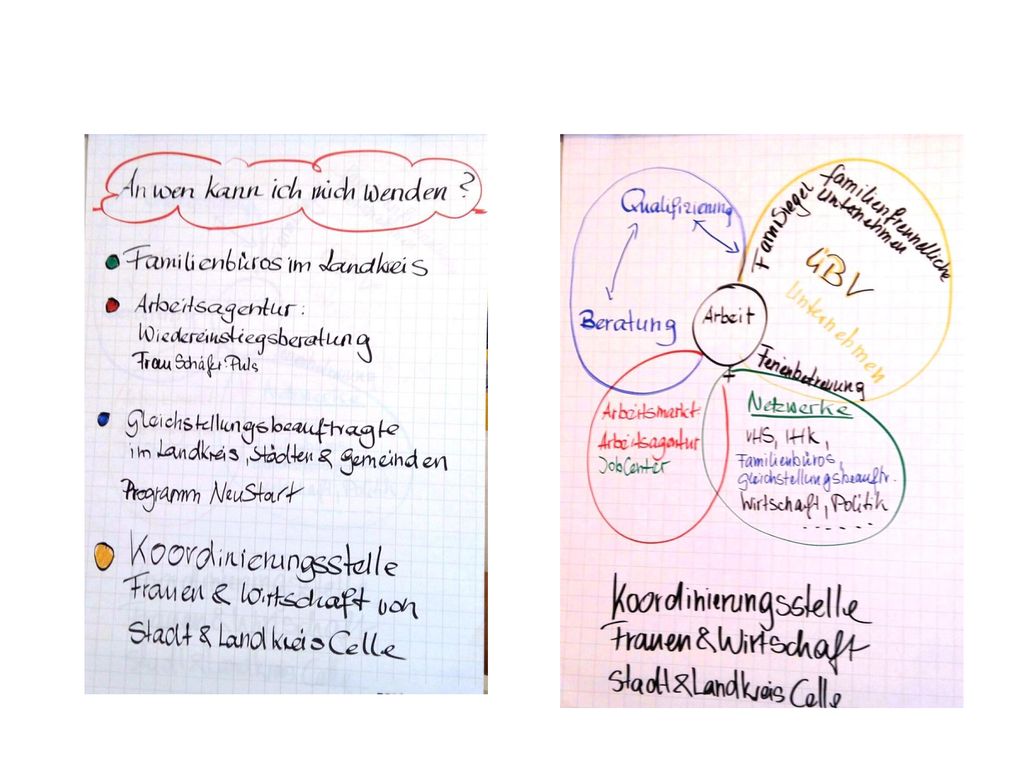 An wen kann ich mich wenden?
Familienbüros im Landkreis
Arbeitsagentur:
Wiedereinstiegsberatung
Frau Schäfer-Puls
Gleichstellungsbeauftragte
im Landkreis, Städten & Gemeinden
Programm NeuStart
Koordinierungsstelle
Frauen & Wirtschaft von
Stadt & Landkreis Celle
Qualifizierung
Beratung
Arbeit
+
FamiSiegel
familienfreundliche
Unternehmen
ÜBV
Unternehmen
Ferienbetreuung
Arbeitsmarkt
Arbeitsagentur
JobCenter
Netzwerke
VHS, IHK,
Familienbüros,
Gleichstellungsbeauftr.
Wirtschaft, Politik
- - - - - -
Koordinierungsstelle
Frauen & Wirtschaft
Stadt & Landkreis Celle